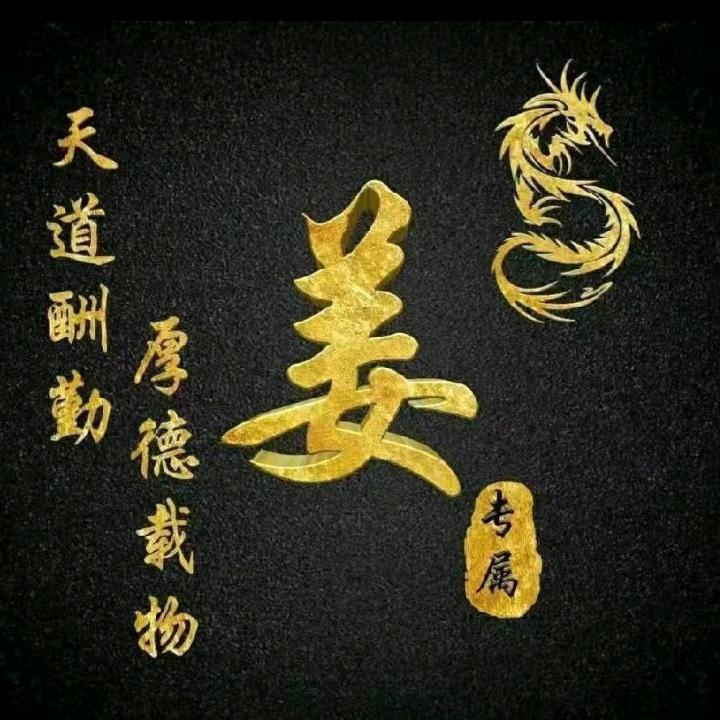 天道酬勤
厚德载物
姜
专属